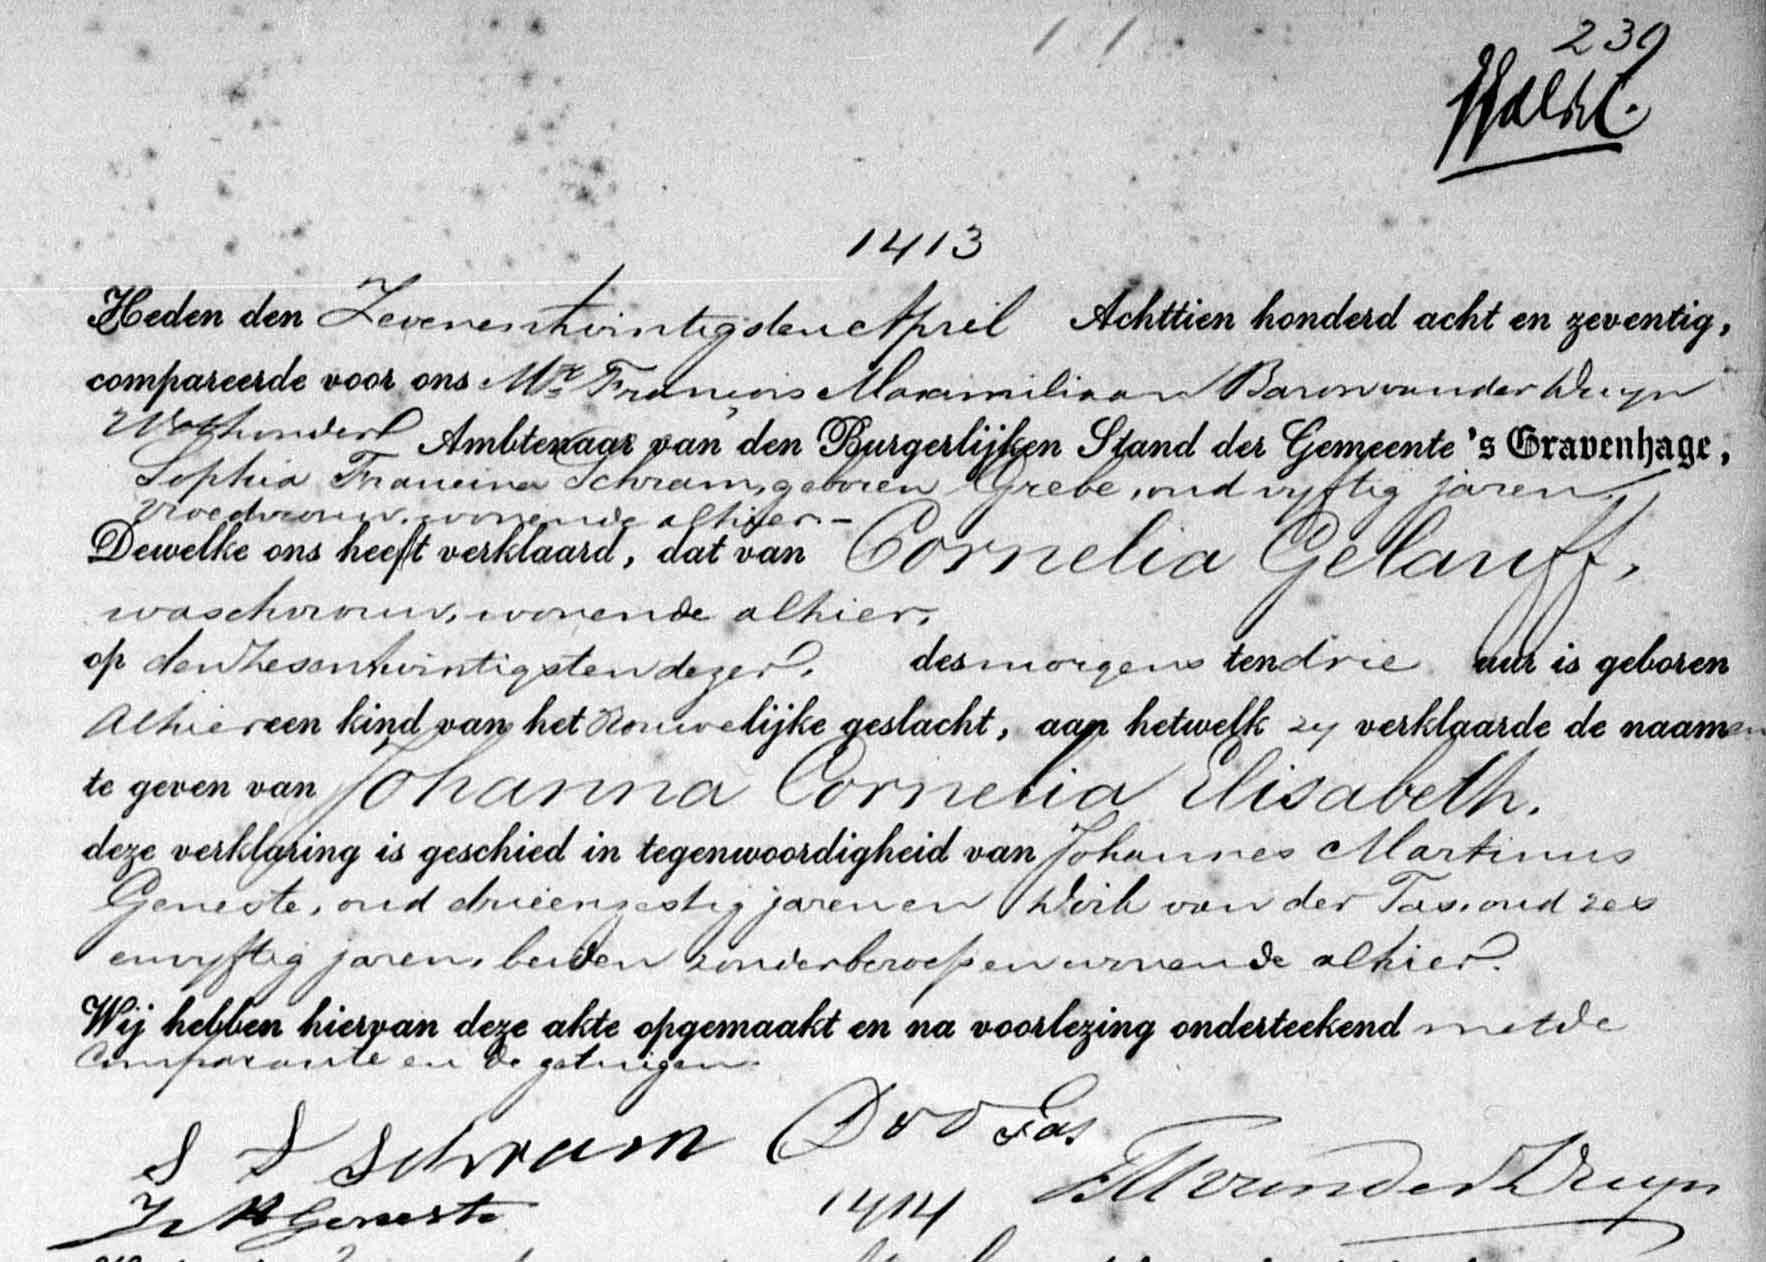 239
1413
Heden den Zevenentwintigsten April Achttien honderd acht en zeventig,
compareerde voor ons Mr. François Maximiliaan Baron van der Duyn
Ambtenaar van den Burgerlijken Stand der Gemeente 's Gravenhage,
Sophia Francina Schram, geboren Grebe, oud vyftig jaren,
vroedvrouw, wonende alhier.–
Dewelke ons heeft verklaard, dat van Cornelia Gelauff,
waschvrouw, wonende alhier,
op den Zesentwintigsten dezer, des morgens ten drie uur is geboren
Alhier een kind van het Vrouwelijke geslacht, aan hetwelk zy verklaarde de naamen
te geven van Johanna Cornelia Elisabeth.
deze verklaring is geschied in tegenwoordigheid van Johannes Martinus
Geneste, oud drieenzestig jaren en Dirk van der Tas, oud zes
envyftig jaren, beiden zonder beroep en wonende alhier.
Wij hebben hiervan deze akte opgemaakt en na voorlezing onderteekend met de
Comparante en de getuigen.
S F Schram D v d Tas
FM van der Duyn
J M Geneste
1414